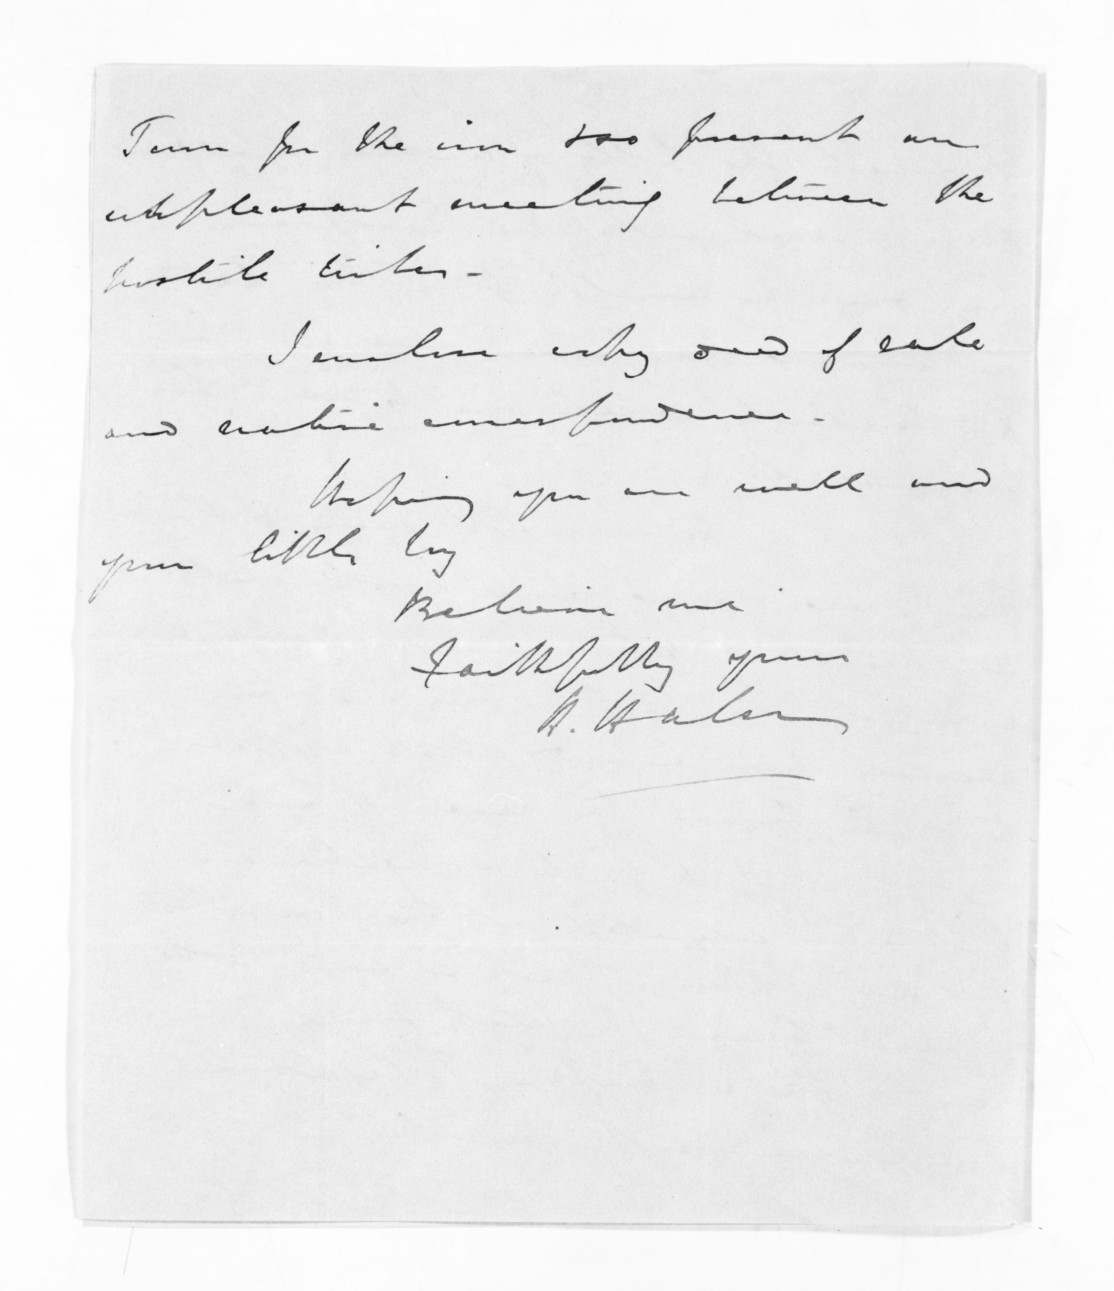 Town for the iron & so prevent an
unpleasant meeting between the
hostile tribes -
I enclose copy deed of sale
and native correspondence -
Hoping you are well and
your little boy
Believe me
Faithfully yours
H. Halse